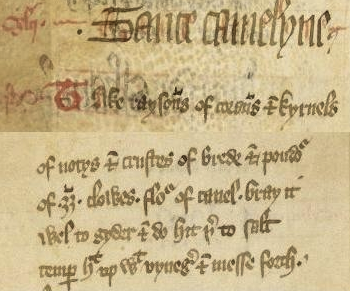 Sauce camelyne
Take raysoūs of coraūs & kyrnels
of notys & crustes of brede & poudʳ
of gȝ. clowes. floʳ of canel. bray it
wel to gyder & do hit þʳto salt
temp hᵗ up wᵗ vynegʳ & messe forth.